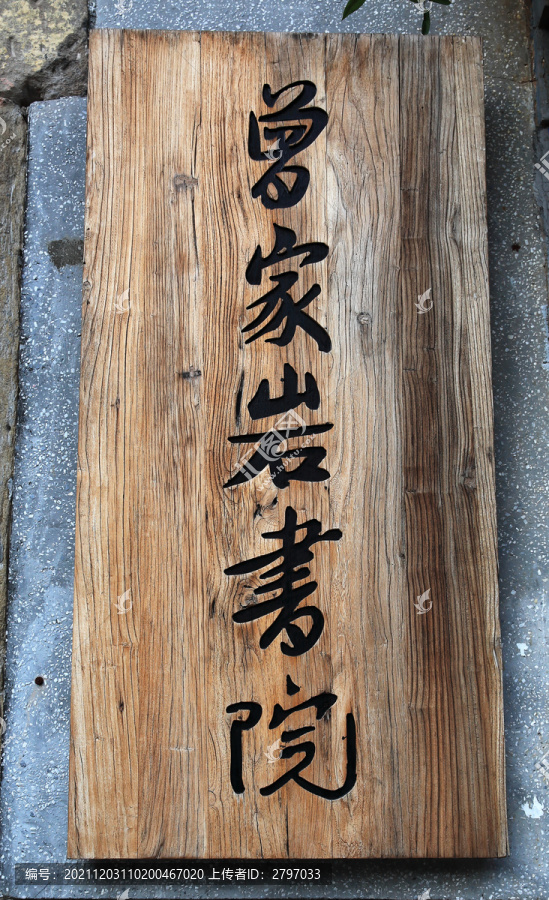 曾家岩书院
编号:20211203110200467020 上传者ID:2797033